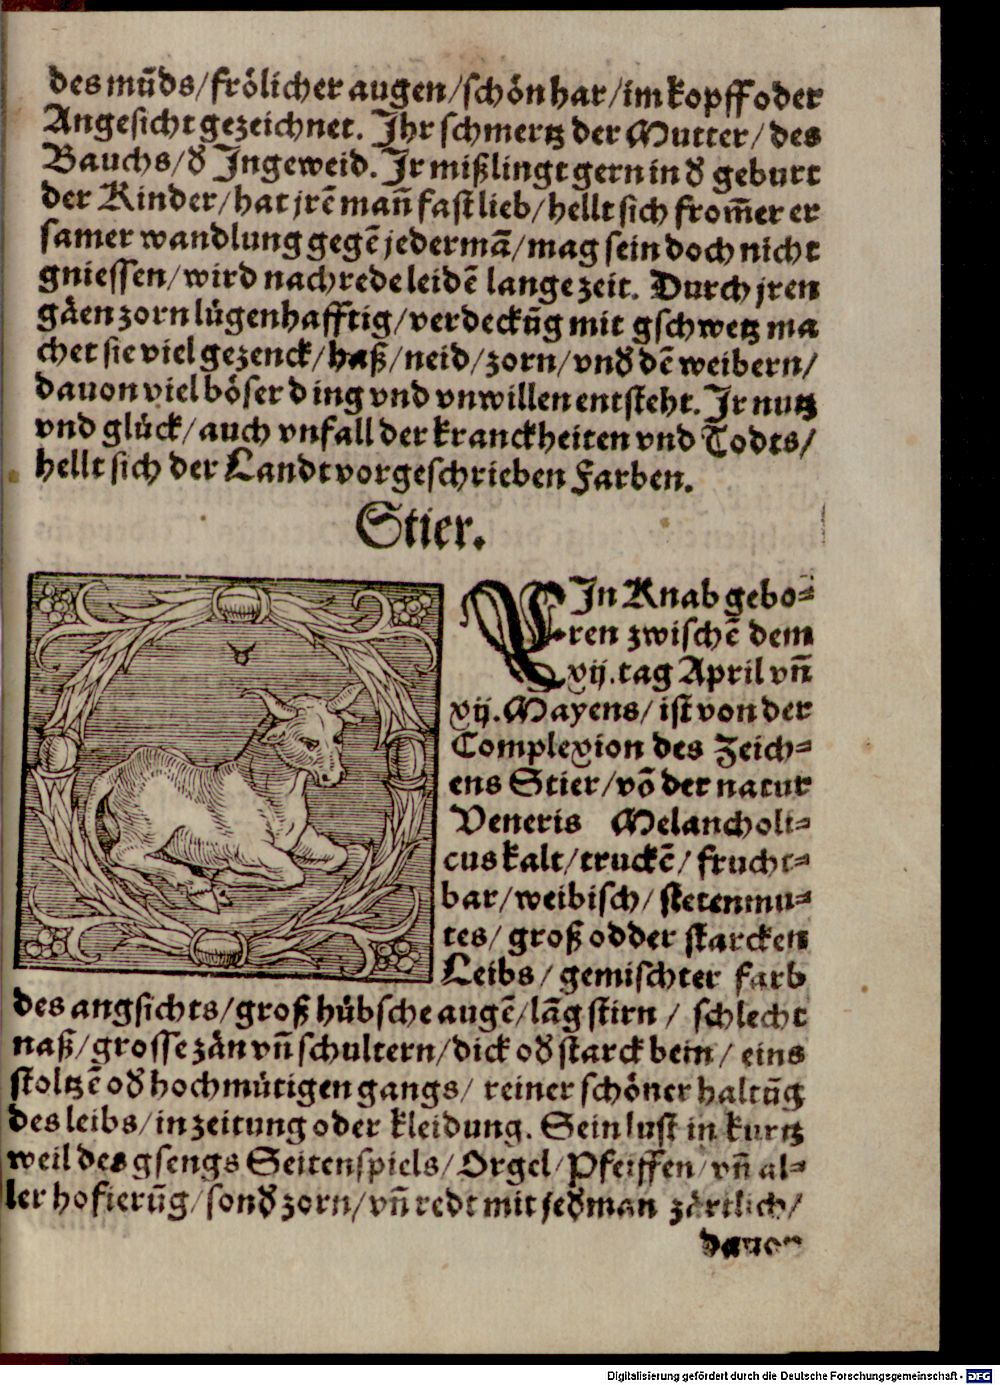 des mũds/frölicher augen/schön har/im kopff oder
Angesicht gezeichnet. Ihr schmertz der Mutter/des
Bauchs/đ Ingeweid. Ir mißlingt gern in đ geburt
der Kinder/hat jrẽ mañ fast lieb/hellt sich from̃er er
samer wandlung gegẽ jedermã/mag sein doch nicht
gniessen/wird nachrede leidẽ lange zeit. Durch jren
gäen zorn lügenhafftig/verdeckũg mit gschwetz ma
chet sie viel gezenck/haß/neid/zorn/vnđ dẽ weibern/
dauon viel böser ding vnd vnwillen entsteht. Ir nutz
vnd glück/auch vnfall der kranckheiten vnd Todts/
hellt sich der Landt vorgeschrieben Farben.
Stier.
EIn Knab gebo⸗
ren zwischẽ dem
xij. tag April vñ
xij. Mayens/ist von der
Complexion des Zeich⸗
ens Stier/võ der natur
Veneris Melancholi⸗
cus kalt/truckẽ/frucht⸗
bar/weibisch/stetenmu⸗
tes/groß odder starcken
Leibs/gemischter farb
des angsichts/groß hübsche augẽ/lãg stirn/schlecht
naß/grosse zän vñ schultern/dick ođ starck bein/eins
stoltzẽ ođ hochmütigen gangs/reiner schöner haltũg
des leibs/in zeitung oder kleidung. Sein lust in kurtz
weil des gsengs Seitenspiels/Orgel/Pfeiffen/vñ al⸗
ler hofierũg/sonđ zorn/vñ redt mit jeđman zärtlich/
dauon
Digitalisierung gefördert durch die Deutsche Forschungsgemeinschaft - DFG